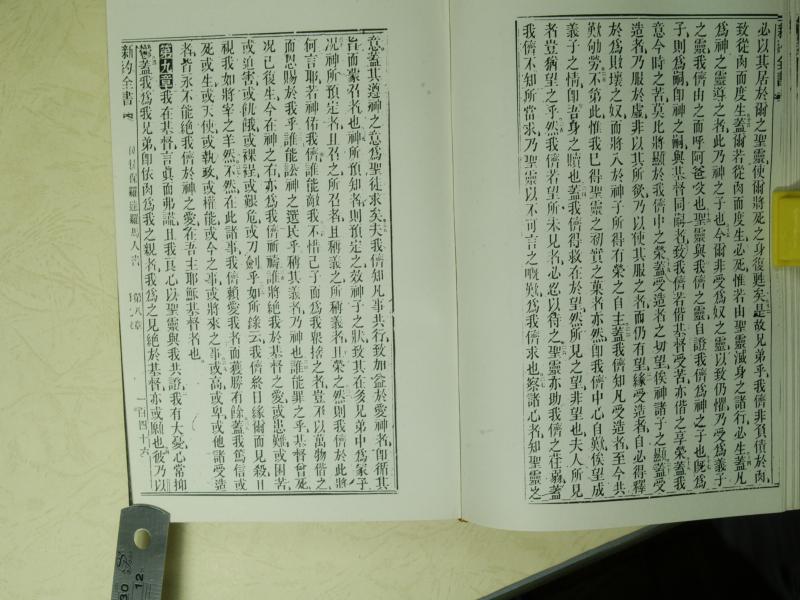 新約全書
必以其居於爾之聖靈使爾將死之身復甦矣是故兄弟乎我儕非負債於肉
致從肉而度生蓋爾若從肉而度生必死惟若由聖靈滅身之諸行必生蓋凡
為神之靈導之者此乃神之子也今爾非受為奴之靈以致仍懼乃受為義子
之靈我儕由之而呼阿爸父也聖靈與我儕之靈自證我儕為神之子也既為
子則為嗣即神之嗣與基督同嗣者致我儕若偕基督受苦亦偕之享榮蓋我
意今時之苦莫比將顯於我儕中之榮蓋受造者之切望俟神諸子之顯蓋受
造者乃服於虛非以其所欲乃以使其服之者而仍有望緣受造者自必得釋
於為敗壞之奴而將入於神子所得有榮之自主蓋我儕知凡受造者至今共
歎劬勞不第此惟我已得聖靈之初實之菓者亦然即我儕中心自歎俟望成
義子之情即吾身之贖也蓋我儕得救在於望然所見之望非望也夫人所見
者豈猶望之乎然我儕若望所未見者必忍以待之聖靈亦助我儕之荏弱蓋
我儕不知所當求乃聖靈以不可言之嘅歎為我儕求也察諸心者知聖靈之
意蓋其遵神之意為聖徒求矣夫我儕知凡事共行致加益於愛神者即循其
旨而蒙召者也神所預知者則預定之效神子之狀致其在眾兄弟中為冢子
況神所預定者且召之所召者且稱義之所稱義者且榮之然則我儕於此將
何言耶若神佑我儕誰能敵我不惜己子而為我眾捨之者豈不以萬物偕之
而恩賜於我乎誰能訟神之選民乎稱其義者乃神也誰能罪之乎基督曾死
況已復生今在神之右亦為我儕祈禱誰將絕我於基督之愛或患難或困苦
或迫害或飢餓或裸裎或艱危或刀劍乎如所錄云我儕終日緣爾而見殺且
視我如將宰之羊然不然在此諸事我儕賴愛我者而獲勝有餘蓋我篤信或
死或生或天使或執政或權能或今之事或將來之事或高或卑或他諸受造
者皆永不能絕我儕於神之愛在吾主耶穌基督者也
第九章我在基督言真而弗謊且我良心以聖靈與我共證我有大憂心常抑
鬱蓋我為我兄弟即依肉為我之親者我為之見絕於基督亦或願也彼乃以
新約全書 使徒保羅達羅馬人書 第八章 一百四十六
30
12